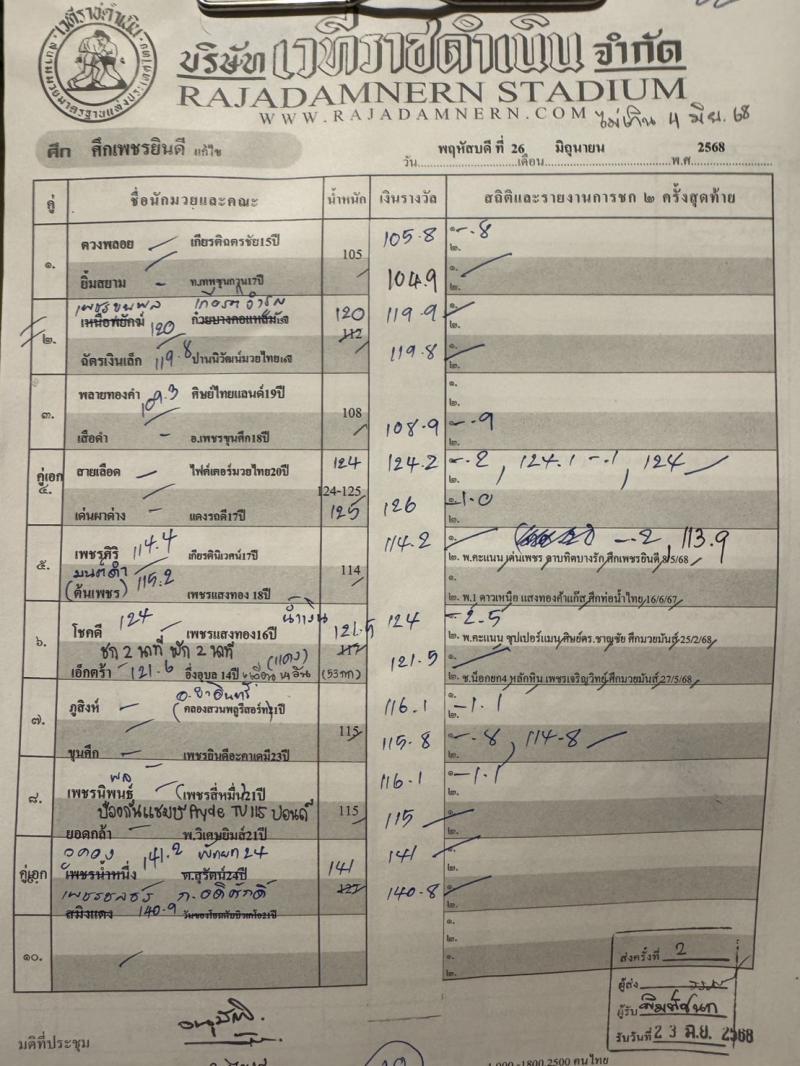 เวทีราชดำเนิน
บริษัท เวทีราชดำเนิน จำกัด
RAJADAMNERN STADIUM
WWW.RAJADAMNERN.COM
ไม่เกิน 4 มิย. 68
ศึก ศึกเพชรยินดี แก้ไข
วัน พฤหัสบดี ที่ 26 เดือน มิถุนายน พ.ศ. 2568
คู่ ชื่อนักมวยและคณะ น้ำหนัก เงินรางวัล สถิติและรายงานการชก ๒ ครั้งสุดท้าย
๑. ดวงพลอย เกียรติฉัตรชัย15ปี 105 105.8 ๑. -.8
๒.
ยิ้มสยาม ท.เทพขุนกวุน17ปี 104.9 ๑.
๒.
๒. เพชรขุนพล 120 119.9 ๑.
เหนือพยัคฆ์ 120 112 ๒.
ฉัตรเงินเล็ก 119.8 ปานนิวัฒน์มวยไทย 119.8 ๑.
๒.
๓. พลายทองคำ 109.3 ศิษย์ไทยแลนด์19ปี 108 ๑.
๒.
เสือดำ อ.เพชรขุนศึก18ปี 108.9 ๑. -.9
๒.
คู่เอก ๔. สายเลือด ไฟต์เตอร์มวยไทย20ปี 124 124.2 ๑. -.2, 124.1 -.1, 124
๒.
124-125
เด่นผาด่าง แดงรถดี17ปี 125 126 ๑. -1.0
๒.
๕. เพชรศิริ 114.4 เกียรตินิเวศน์17ปี 114 114.2 ๑. -.2, 113.9
๒. พ.คะแนน เด่นเพชร ดาบทิตบางรัก,ศึกเพชรยินดี,8/5/68
มนต์ดำ 115.2 ๑.
(ต้นเพชร) เพชรแสงทอง 18ปี ๒. พ.1 ดาวเหนือ แสงทองค้าแก๊ส,ศึกท่อน้ำไทย,16/6/67
๖. โชคดี 124 เพชรแสงทอง16ปี น้ำเงิน 121.5 124 ๑. -2.5
ชก 2 นาที พัก 2 นาที 117 ๒. พ.คะแนน ซุปเปอร์แมน ศิษย์ดร.ชาญชัย ศึกมวยมันส์,25/2/68
(แดง)
เอ็กตร้า 121.6 อึ่งอุบล 14ปี (53กก) 121.5 ๑.
๒. ช.น็อกยก4 หลักหิน เพชรเจริญวิทย์,ศึกมวยมันส์,27/5/68
๗. ภูสิงห์ (คลองสวนพลูรีสอร์ท)21ปี 115 116.1 ๑. -1.1
๒.
ขุนศึก เพชรยินดีอะคาเดมี23ปี 115.8 ๑. -.8, 114.8
๒.
๘. พล
เพชรนิพนธุ์ (เพชรสี่หมื่น)21ปี 115 116.1 ๑. -1.1
๒.
ป้องกันแชมป์ TV 115 ปอนด์
ยอดกล้า พ.วิเศษยิมส์21ปี 115 ๑.
๒.
คู่เอก 141.2 141 141 ๑.
เพชรน้ำหนึ่ง ท.สุรัตน์24ปี 127 ๒.
เพชรชลธร ภ.อดิศักดิ์ 140.8 ๑.
สมิงแดง 140.9 ๒.
๑๐. ๑.
๒.
๑.
๒.
ส่งครั้งที่ 2
ผู้ส่ง
ผู้รับ พิมพ์ชนก
รับวันที่ 23 มิ.ย. 2568
มติที่ประชุม